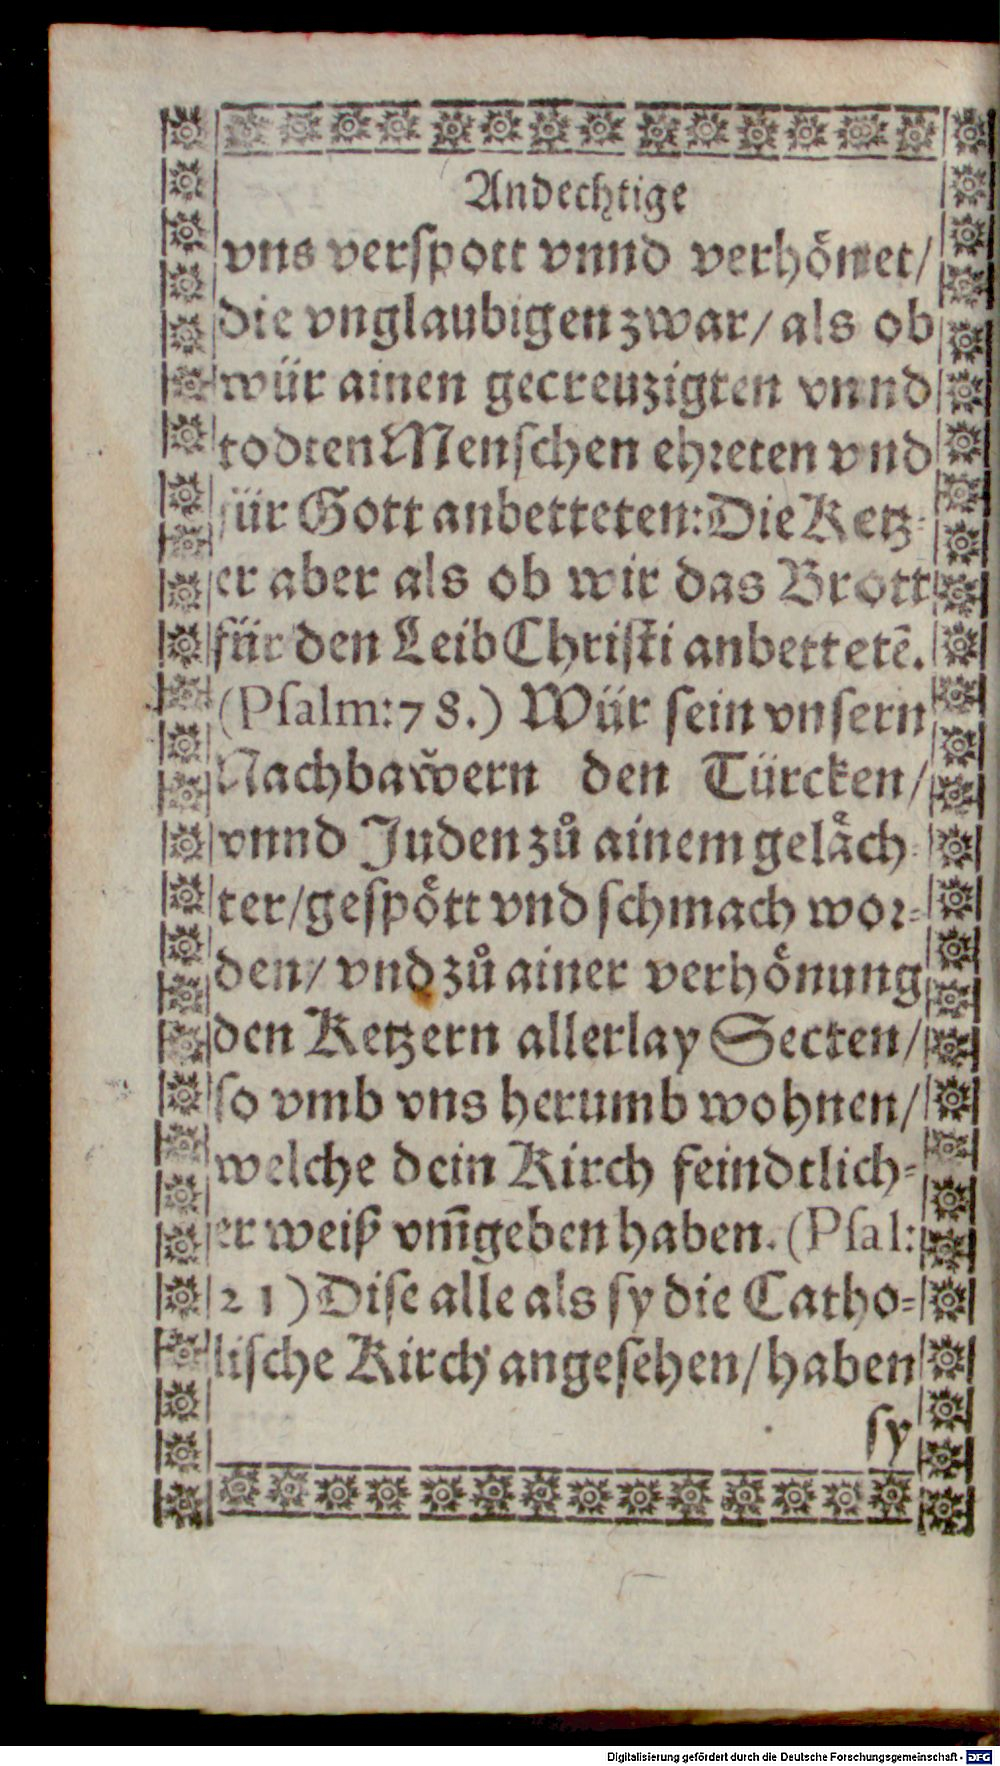 Andechtige
vns verspott vnnd verhönet/
die vnglaubigen zwar/ als ob
wür ainen gecreuzigten vnnd
todten Menschen ehreten vnd
für Gott anbetteten: Die Ketz-
er aber als ob wir das Brott
für den Leib Christi anbettetē.
(Psalm: 78.) Wür sein vnsern
Nachbaw̌ern den Türcken/
vnnd Juden zů ainem geläch-
ter/ gespött vnd schmach wor-
den/ vnd zů ainer verhönung
den Ketzern allerlay Secten/
so vmb vns herumb wohnen/
welche dein Kirch feindtlich-
er weiß vm̄geben haben. (Psal:
21) Dise alle als sy die Catho-
lische Kirch angesehen/ haben
sy
Digitalisierung gefördert durch die Deutsche Forschungsgemeinschaft - DFG